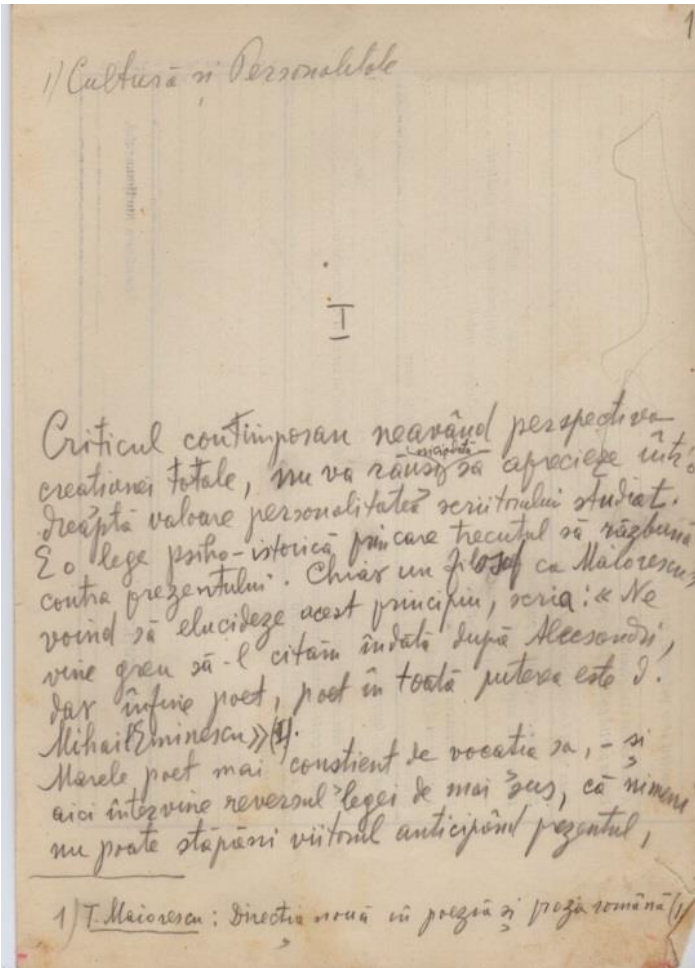 1
1) Cultură și Personalitate
I
Criticul contimporan neavând perspectiva
creațiunei totale, nu va răuși niciodată să aprecieze într'o
dreaptă valoare personalitatea scriitorului studiat.
E o lege psiho-istorică prin care trecutul să răzbună
contra prezentului. Chiar un filosof ca Maiorescu,
voind să elucideze acest principiu, scria: « Ne
vine greu să-l cităm îndată după Alecsandri,
dar înfine poet, poet în toată puterea este D.
Mihail Eminescu »(1).
Marele poet mai conștient de vocația sa, - și
aici intervine reversul legei de mai sus, că nimeni
nu poate stăpâni viitorul anticipând prezentul,
1) T. Maiorescu: Direcția nouă în poezia și proza română (1